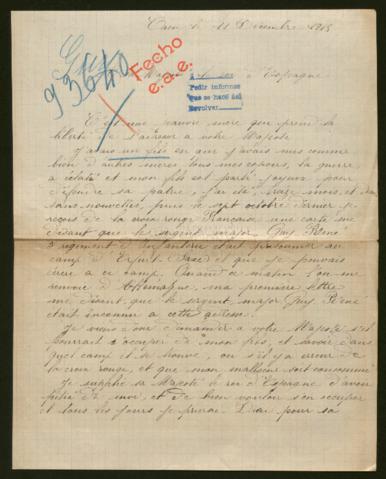 Caen le 11 Décembre 1915
Guy
93640
Fecho
e.a.e.
Espagne
Pedir informes
que se hace del
Devolver
C'est une pauvre mère qui prend la
liberté de s'adresser à votre Majesté
J'avais un fils en qui j'avais mis comme
bien d'autres mères tous mes espoirs, la guerre
a éclaté et mon fils est parti joyeux pour
défendre sa patrie, j'ai été mois
sans nouvelles, puis le sept octobre dernier je
reçois de la croix rouge Française une carte me
disant que le sergent major Guy René
5 regiment d'Infanterie était prisonnier au
camp d'Erfurt Saxe et que je pouvais
écrire à ce camp. Quand ce matin l'on me
renvoie d'Allemagne, ma première lettre
me disant que le sergent major Guy René
était inconnu à cette adresse.
Je viens donc demander à votre Majesté s'il
pourrait s'occuper de mon fils, et savoir dans
quel camp il se trouve, ou s'il y a erreur de
la croix rouge, et que mon malheur soit consommé
Je supplie sa Majesté le roi d'Espagne d'avoir
pitié de moi, et de bien vouloir s'en occuper
et tous les jours je prierai Dieu pour sa